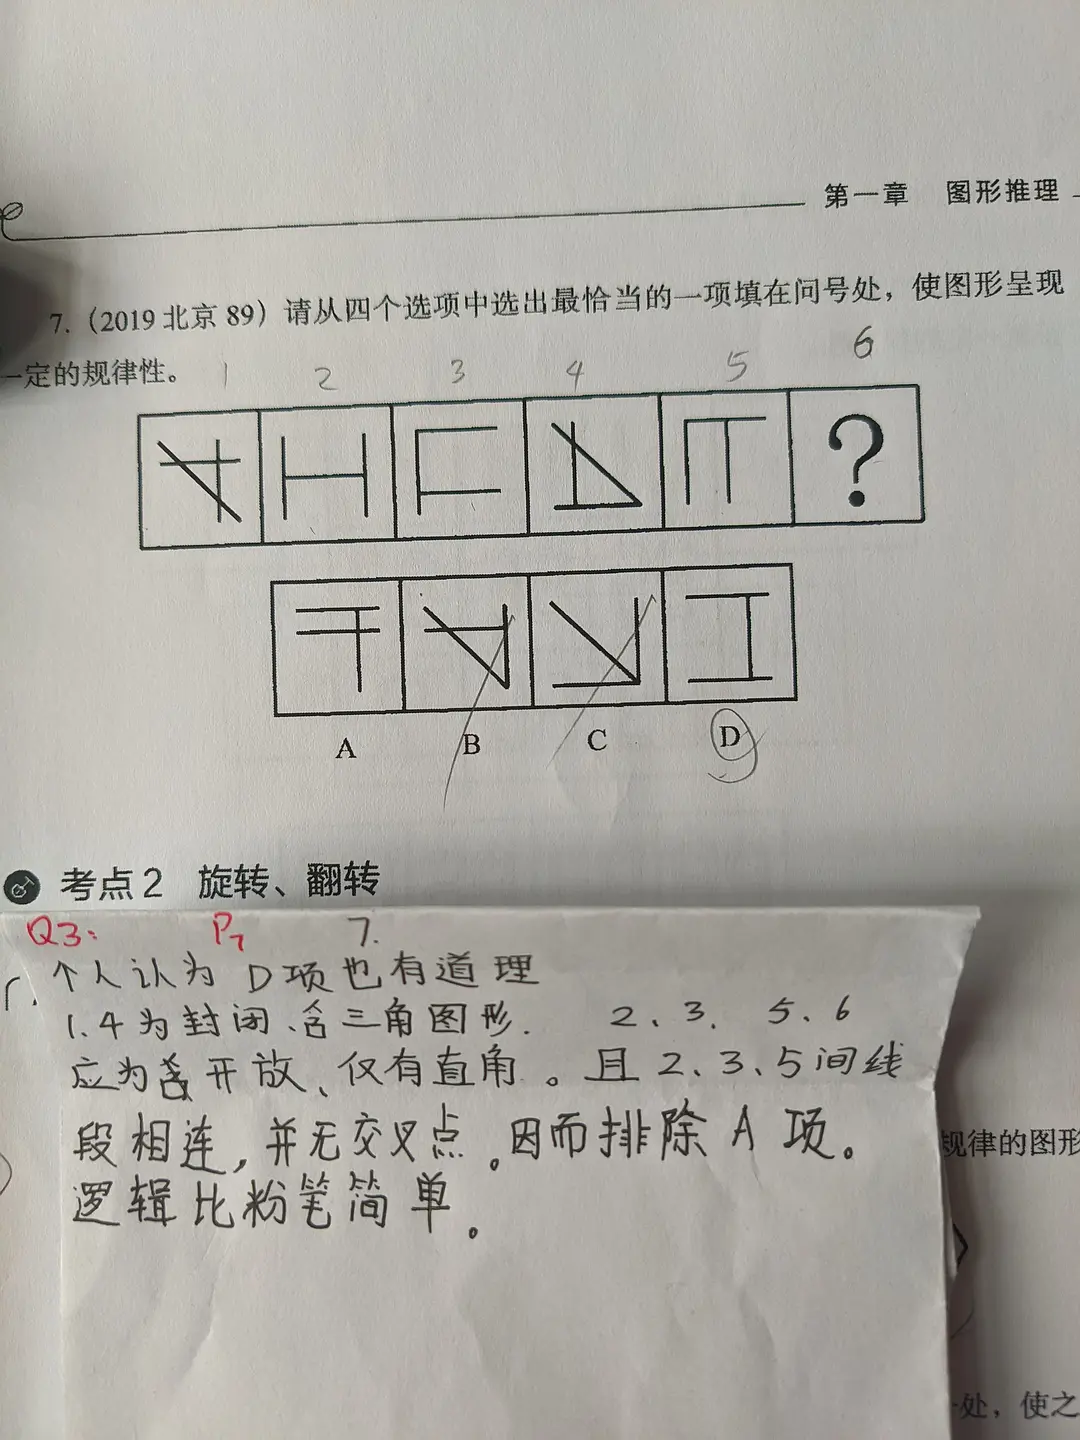 第一章 图形推理
7.（2019 北京 89）请从四个选项中选出最恰当的一项填在问号处，使图形呈现
一定的规律性。
1 2 3 4 5 6
?
A B C D
考点2 旋转、翻转
Q3: P7 7.
个人认为 D项也有道理
1.4为封闭、含三角图形. 2、3、5、6
应为开放、仅有直角。且2、3、5间线
段相连,并无交叉点。因而排除A项。
规律的图形
逻辑比粉笔简单。
处，使之